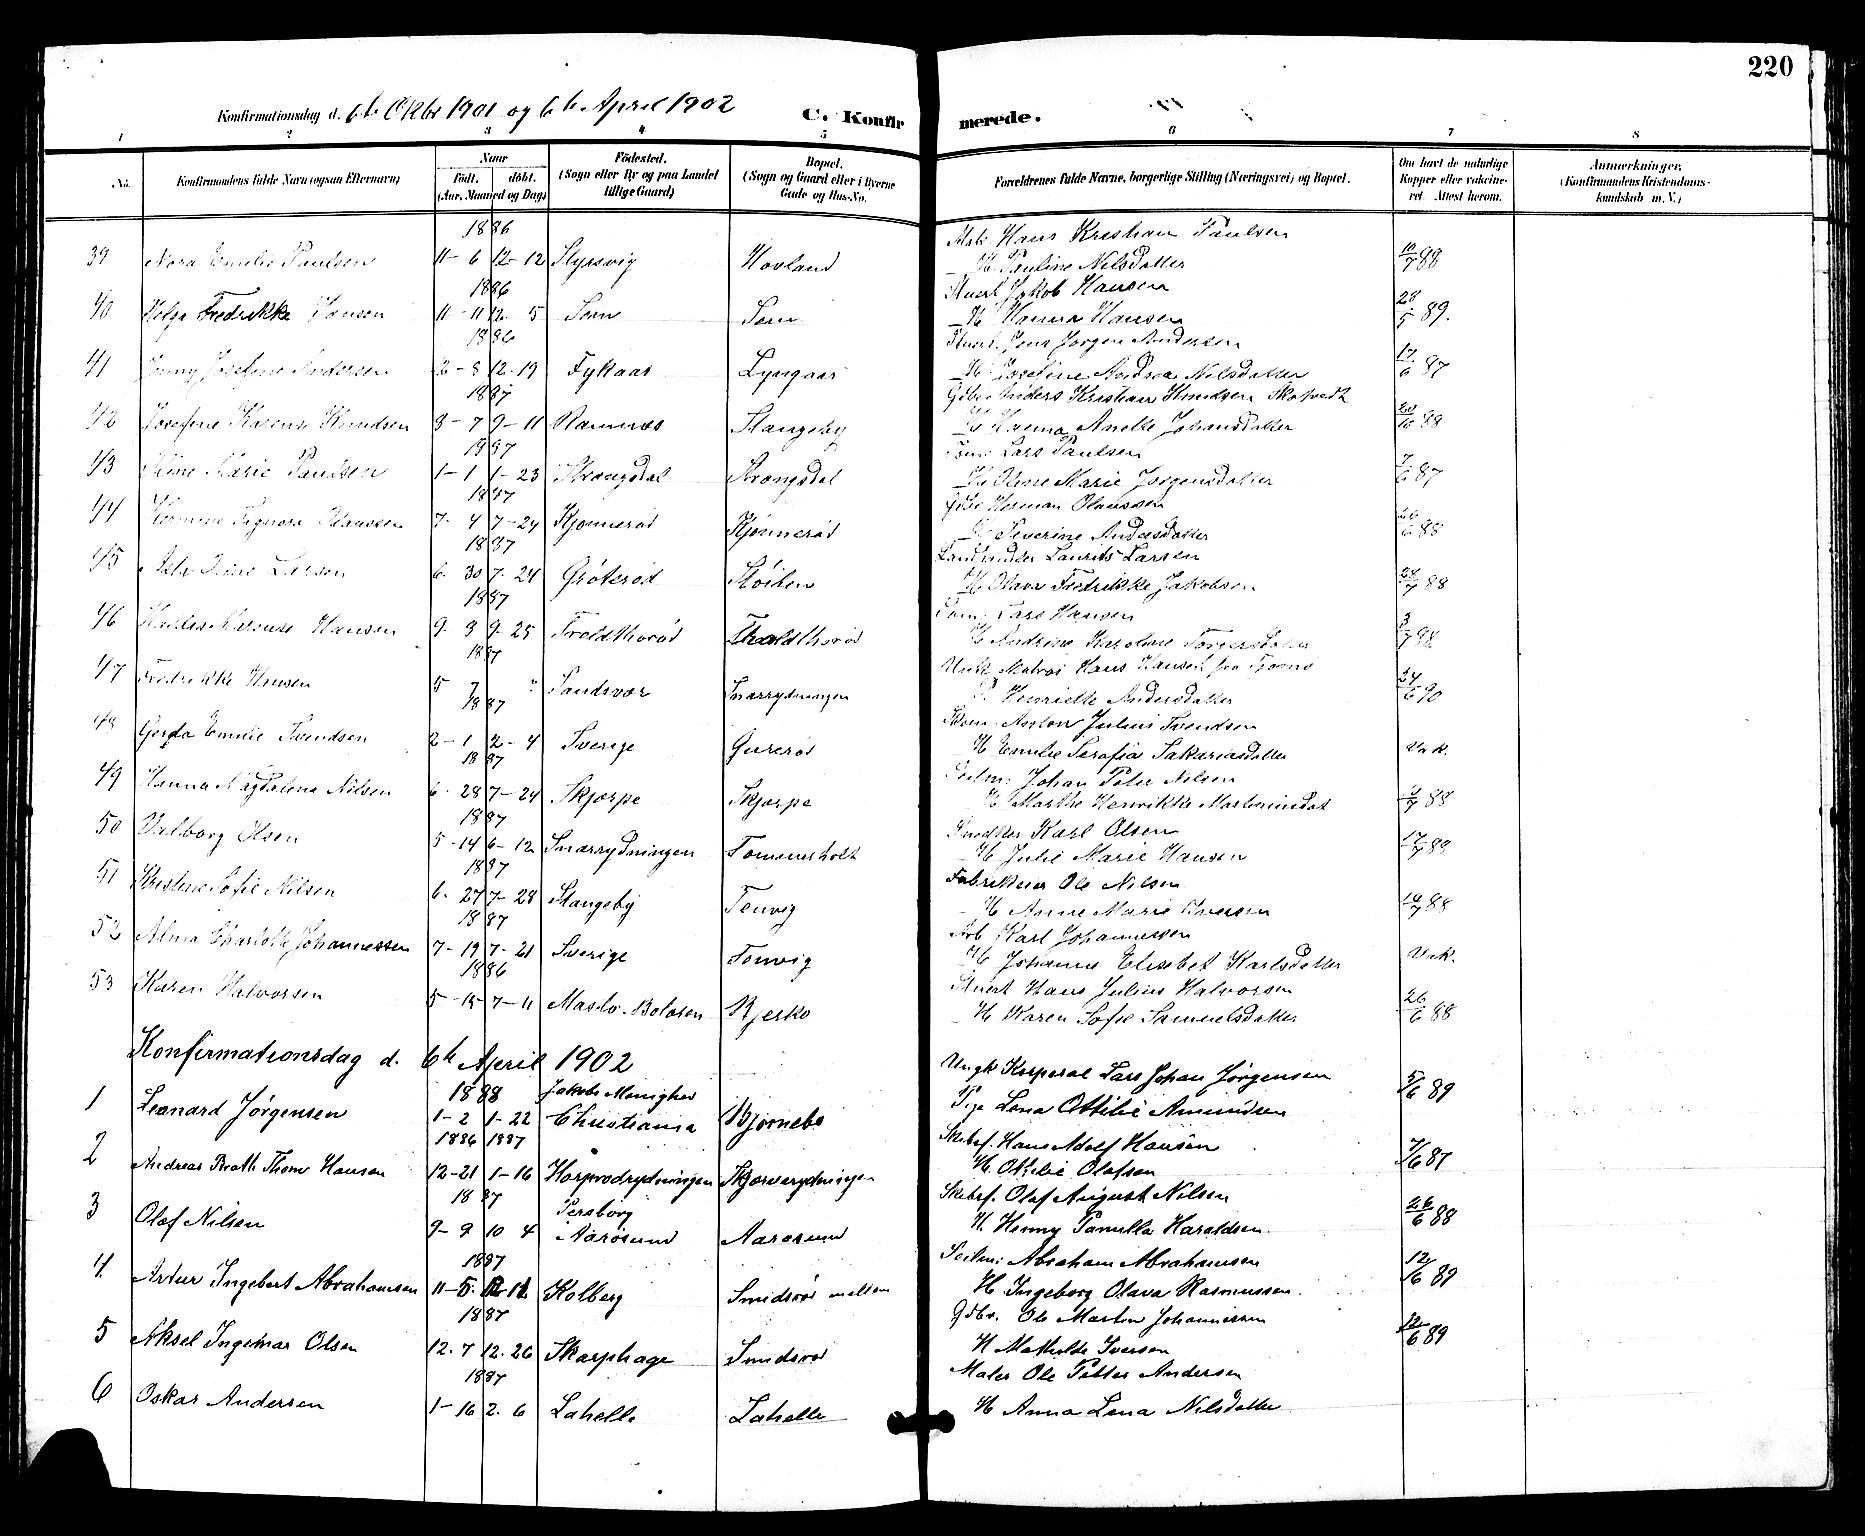 220
Konfirmationsdag d. 6te Oktbr 1901 og 6te April 1902 C. Konfirmerede.
1 2 3 4 5 6 7 8
No. Konfirmandens fulde Navn (ogsaa Efternavn) Naar Født. døbt. (Aar, Maaned og Dag) Fødested. (Sogn eller By og paa Landet tillige Gaard) Bopæl. (Sogn og Gaard eller i Byerne Gade og Hus-No. Forældrenes fulde Navne, borgerlige Stilling (Næringsvei) og Bopæl. Om havt de naturlige Kopper eller vakcineret. Attest herom. Anmærkninger, (Konfirmandens Kristendomskundskab m. V.)
1886 Matr. Hans Kristian Paulsen
39 Nora Emilie Paulsen 11-6 12-12 Styrsvig Hovland H. Pauline Nilsdatter 10/7 88
1886 Stuert Jakob Hansen
40 Helga Fredrikke Hansen 11-11 12-5 Sem Sem H. Hanna Hansen 28/5 89.
1886 Stuert. Jens Jørgen Andersen
41 Jenny Josefine Andersen 2-8 12-19 Fykaas Lyngaas H. Josefine Andrea Nilsdatter 17/6 87
1887 Gdbr Anders Kristian Knudsen Skotvedt
42 Josefine Karense Knudsen 8-7 9-11 Ramnæs Stangeby H. Hanna Anette Johansdatter 88
1887 Tøm: Lars Paulsen
43 Stine Marie Paulsen 1-1 1-23 Strængsdal Strængsdal H. Oline Marie Jørgensdatter 7/6 87
1887 Gdbr Herman Olaussen
44 Hermine Signora Olaussen 7-4 7-24 Kjønnerød Kjønnerød H. Severine Andersdatter 26/6 88
1887 Landhandler Laurits Larsen
45 Larsen 6-30 7-24 Grøterød Støiten H. Olava Fredrikke Jakobsen 88
1887 Tøm: Lars Hansen
46 Hansen 9-3 9-25 Troldthorød Troldthorød H. Andrine Karoline Torgersdatter 3/7 98
1887 Ungk. Matros Hans Hansen fra Tjømø
47 Fredrikke Hansen 5-7 " Sandsvær Snarrydningen P. Henriette Andersdatter 24/6 90
1887 Skom. Anton Julius Svendsen
48 Gerda Emilie Svendsen 2-1 2-4 Sverige Gurerød H. Emilie Serafia Sakariasdatter Vak.
1887 Seilm: Johan Peter Nilsen
49 Hanna Magdalena Nilsen 6-28 7-24 Skjærpe Skjærpe H. Marthe Henrikke Martiniusdat 88
1887 Snedker Karl Olsen
50 Valborg Olsen 5-14 6-12 Snarrydningen Tømmerholt H. Julie Marie Hansen 17/7 89
1887 Fabrikeier Ole Nilsen
51 Kristine Sofie Nilsen 6-27 7-28 Stangeby Tenvig H. Anne Marie Iversen 88
1887 Arb Karl Johannessen
52 Alma Charlotte Johannessen 7-19 7-21 Sverige Tenvig H. Johanne Elisabet Karlsdatter Vak.
1886 Stuert Hans Julius Halvorsen
53 Karen Halvorsen 5-15 7-11 Maslø. Bolæren Bjerkø H. Karen Sofie Samuelsdatter 26/6 88
Konfirmationsdag d. 6te April 1902
1888 Jakobs Menighed Ungk Korporal Lars Johan Jørgensen
1 Leonard Jørgensen 1-2 1-22 Christiania Bjørnebo Pige Lena Ottilie Amundsen 5/6 89
1886 1887 Skibsf. Hans Adolf Hansen
2 Andreas Brath Thom Hansen 12-21 1-16 Skjærverydningen H. Ottilie Olafsen 7/6 87
1887 Skibsf. Olaf August Nilsen
3 Olaf Nilsen 9-9 10-4 Persborg i Aarøsund Aarøsund H. Henny Pamilla Haraldsen 26/6 88
1887 Seilm: Abraham Abrahamsen
4. Artur Ingebert Abrahamsen 11-5. 12-11 Kolberg Smidsrød mellem H Ingeborg Olava Rasmussen 12/6 89
1887 Gdbr. Ole Martin Johannessen
5 Aksel Ingemar Olsen 12-7 12-26 Skarphage Smidsrød H Mathilde Iversen 12/6 89
1887 Maler Ole Petter Andersen
6 Oskar Andersen 1-16 2-6 Lahelle Lahelle H Anna Lena Nilsdatter